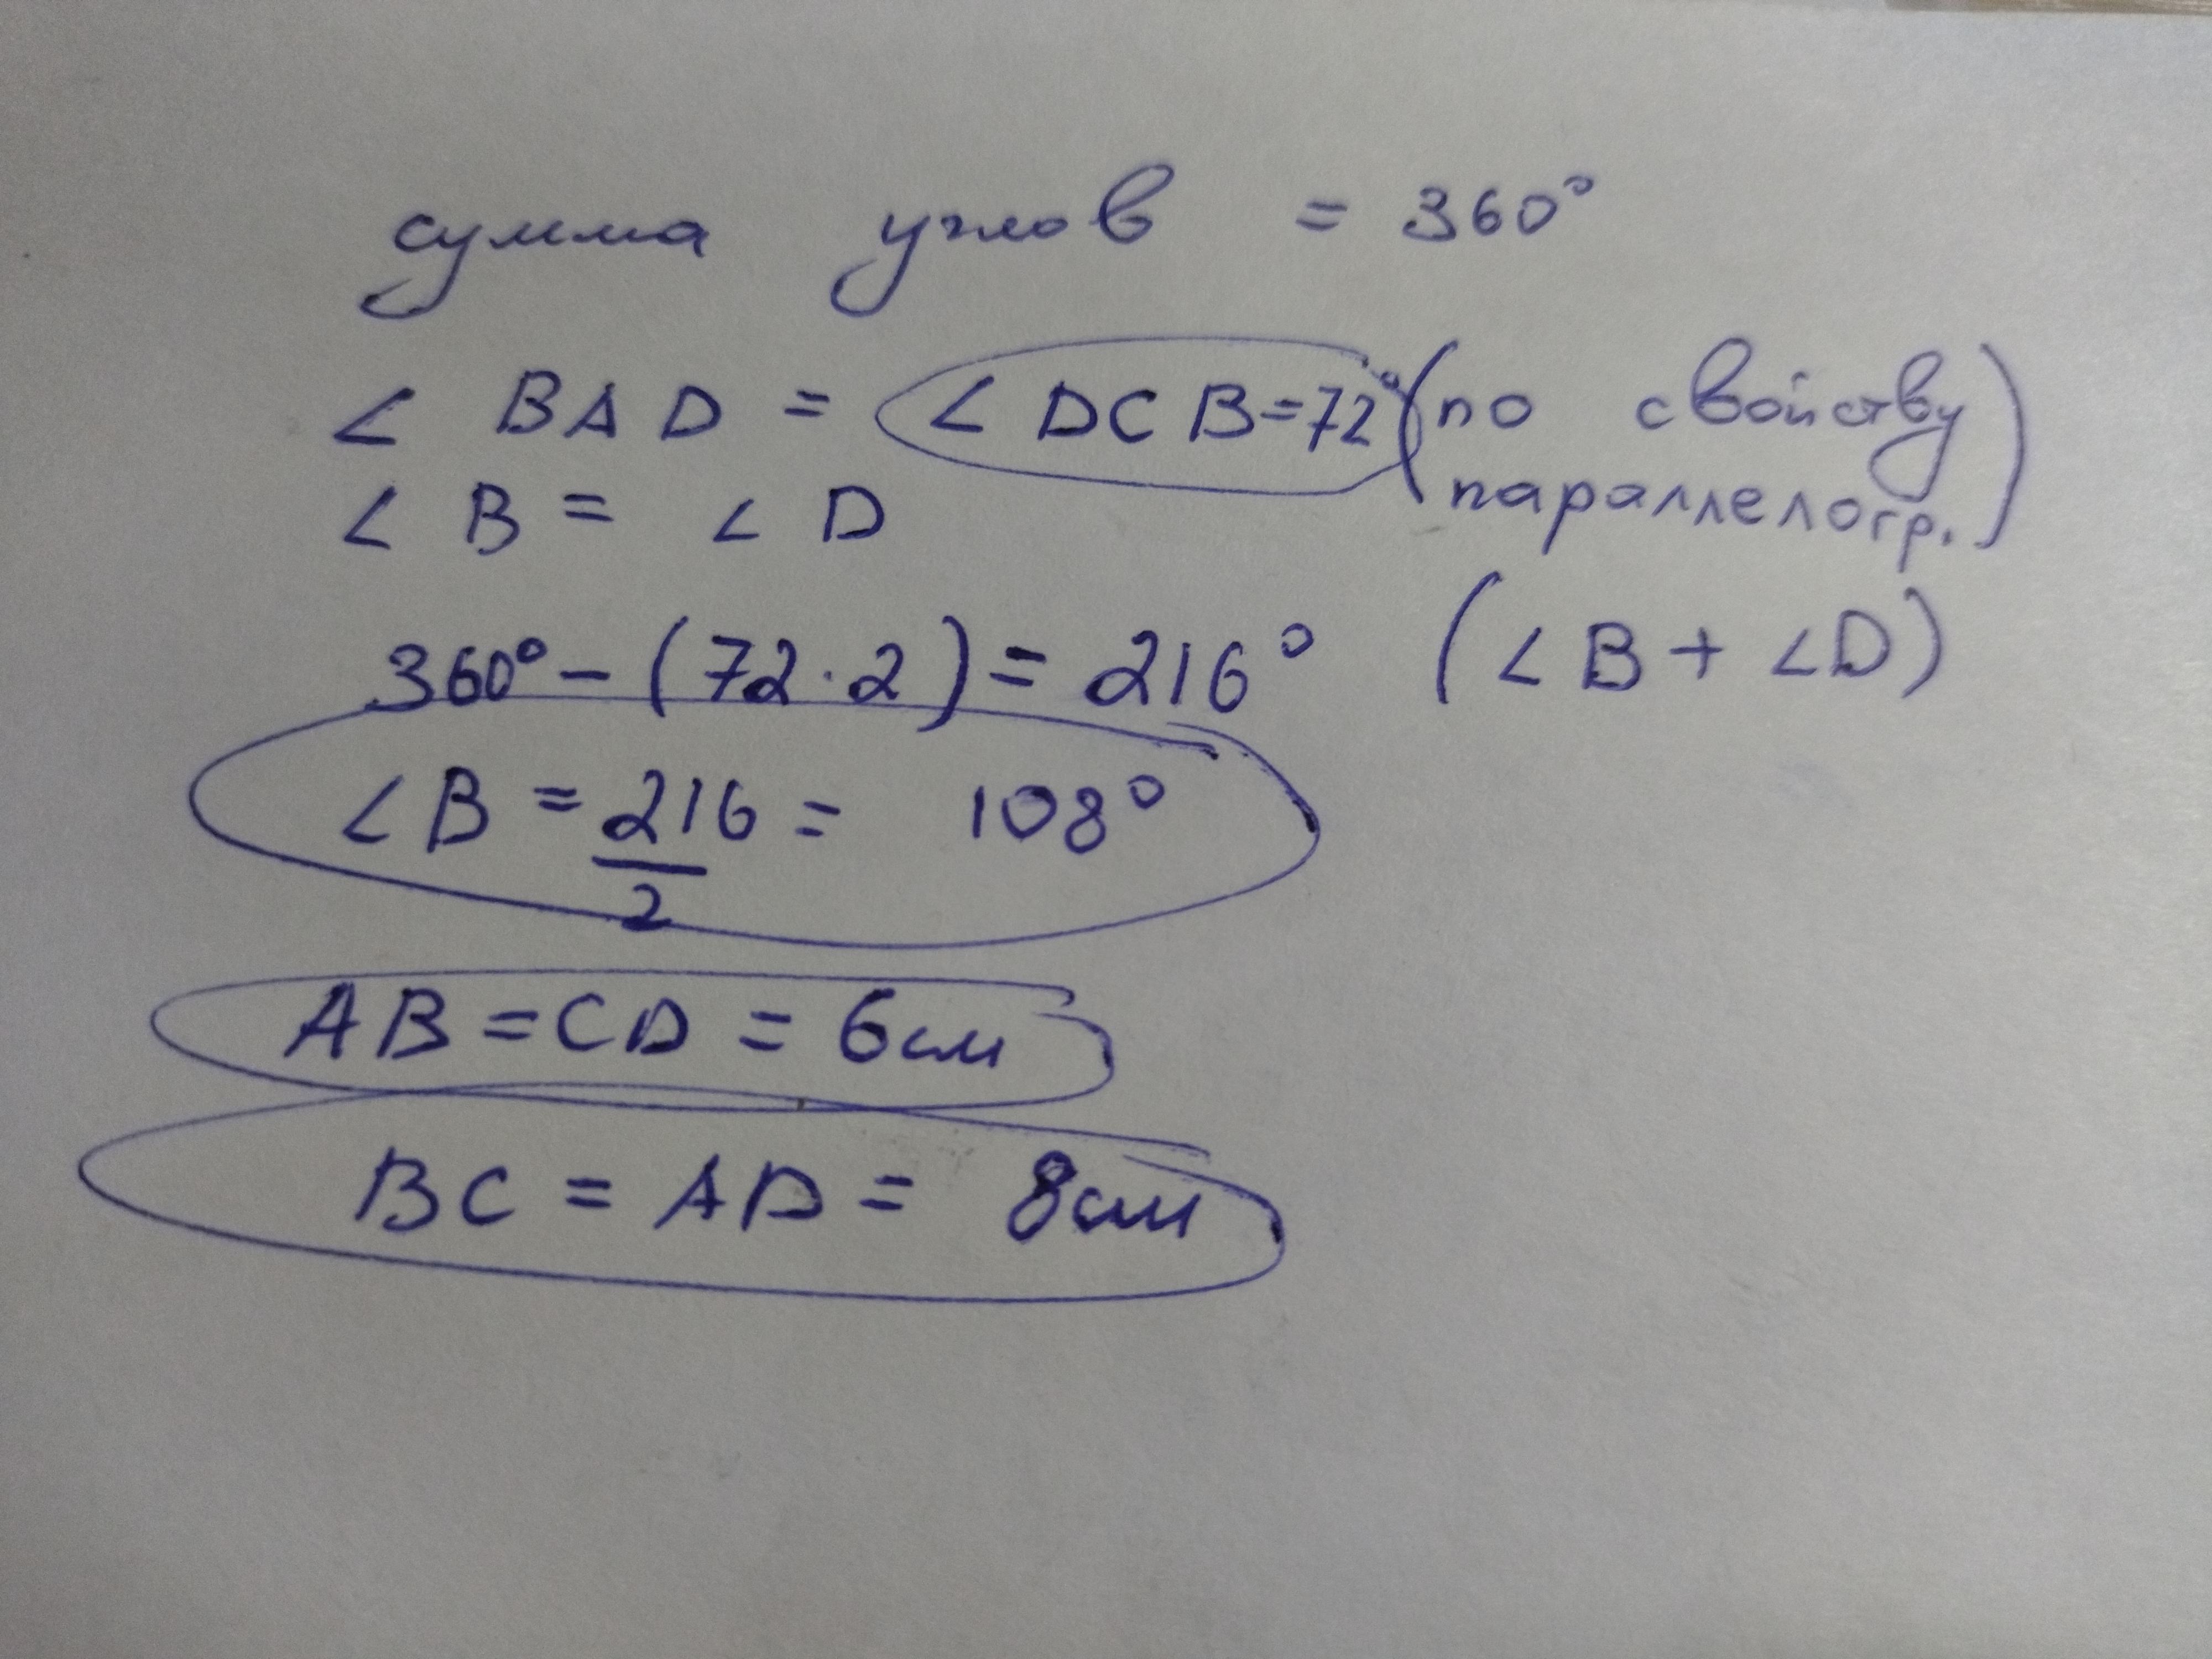 сумма углов = 360°
∠ BAD = ∠ DCB=72° (по свойству
∠ B = ∠ D параллелогр.)
360° - (72·2) = 216° (∠B + ∠D)
∠B = 216/2 = 108°
AB = CD = 6см
BC = AD = 8см